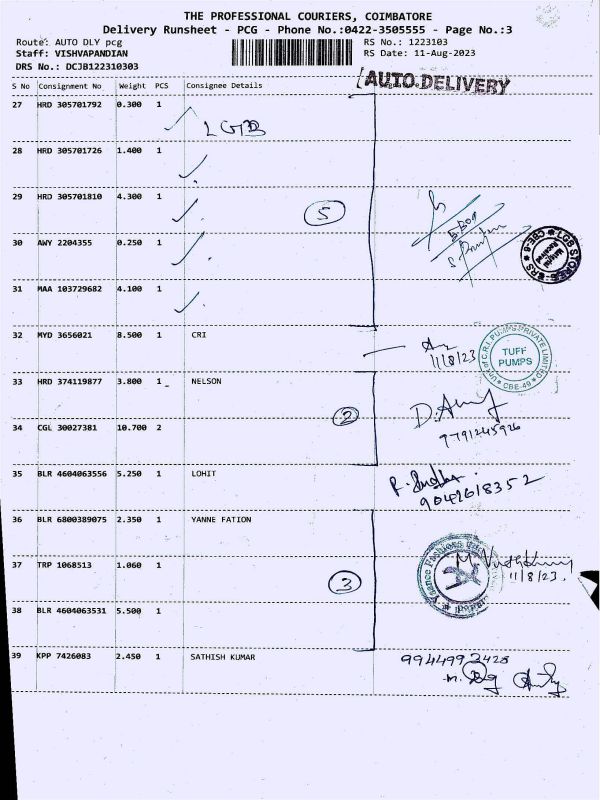 THE PROFESSIONAL COURIERS, COIMBATORE
Delivery Runsheet - PCG - Phone No.:0422-3505555 - Page No.:3
Route: AUTO DLY pcg
Staff: VISHVAPANDIAN
DRS No.: DCJB122310303
RS No.: 1223103
RS Date: 11-Aug-2023
AUTO.DELIVERY
S No Consignment No Weight PCS Consignee Details
27 HRD 305701792 0.300 1
LGB
28 HRD 305701726 1.400 1
29 HRD 305701810 4.300 1
5
30 AWY 2204355 0.250 1
LGB STORES
CBE-6
Material Received
31 MAA 103729682 4.100 1
32 MYD 3656021 8.500 1 CRI
11/8/23
Unit of C.R.I. PUMPS PRIVATE LIMITED
TUFF PUMPS
CBE-49
33 HRD 374119877 3.800 1 NELSON
2
34 CGL 30027381 10.700 2
9791245926
35 BLR 4604063556 5.250 1 LOHIT
9042618352
36 BLR 6800389075 2.350 1 YANNE FATION
37 TRP 1068513 1.060 1
3
11/8/23.
38 BLR 4604063531 5.500 1
39 KPP 7426083 2.450 1 SATHISH KUMAR